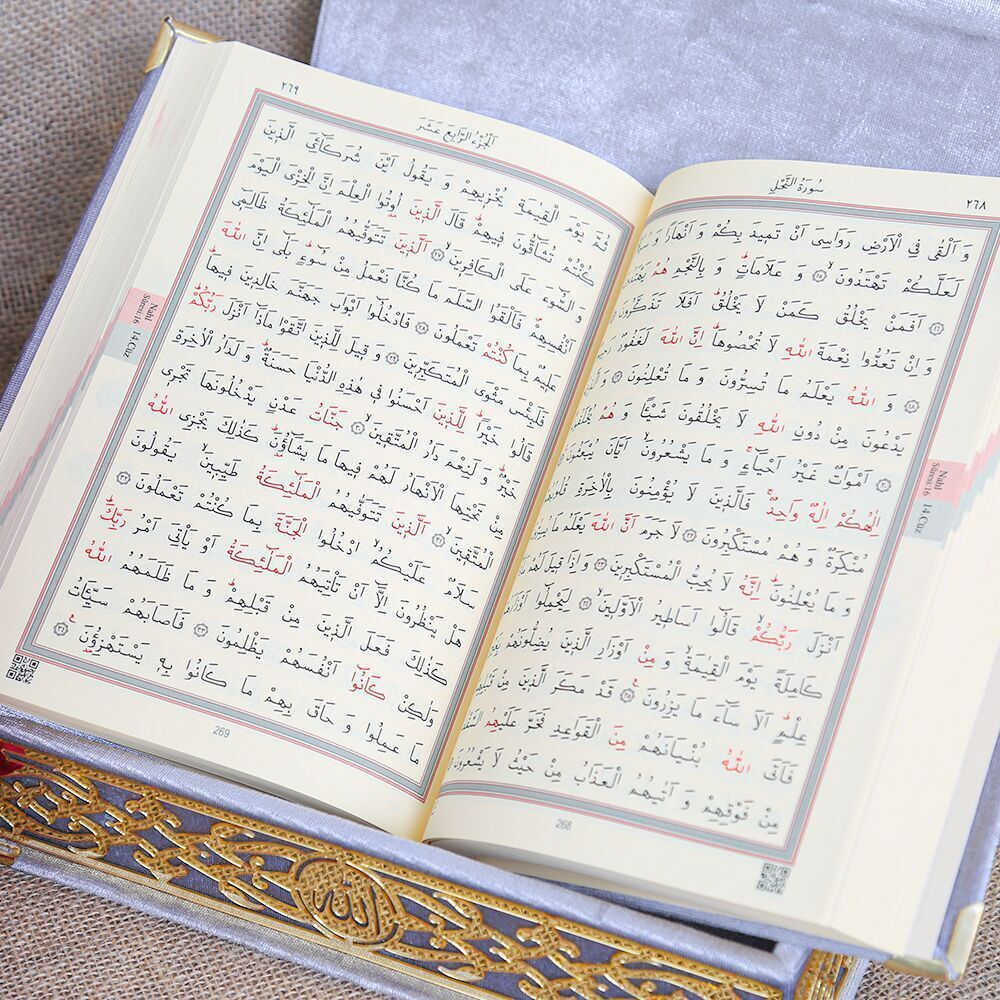 سُورَةُ النَّحْلِ
٢٦٨
وَ اَلْقٰى فِي الْاَرْضِ رَوَاسِيَ اَنْ تَمِيدَ بِكُمْ وَ اَنْهَارًا وَ
لَعَلَّكُمْ تَهْتَدُونَۙ ﴿١٥﴾ وَ عَلَامَاتٍۜ وَ بِالنَّجْمِ هُمْ يَهْتَدُونَ
﴿١٦﴾ اَفَمَنْ يَخْلُقُ كَمَنْ لَا يَخْلُقُۜ اَفَلَا تَذَكَّرُونَ
وَ اِنْ تَعُدُّوا نِعْمَةَ اللّٰهِ لَا تُحْصُوهَاۜ اِنَّ اللّٰهَ لَغَفُورٌ رَحِيمٌ
﴿١٨﴾ وَ اللّٰهُ يَعْلَمُ مَا تُسِرُّونَ وَ مَا تُعْلِنُونَ ﴿١٩﴾ وَ الَّذِينَ
يَدْعُونَ مِنْ دُونِ اللّٰهِ لَا يَخْلُقُونَ شَيْـًٔا وَ هُمْ يُخْلَقُونَ
﴿٢٠﴾ اَمْوَاتٌ غَيْرُ اَحْيَٓاءٍۚ وَ مَا يَشْعُرُونَۙ اَيَّانَ يُبْعَثُونَ
اِلٰهُكُمْ اِلٰهٌ وَاحِدٌۚ فَالَّذِينَ لَا يُؤْمِنُونَ بِالْاٰخِرَةِ قُلُوبُهُمْ
مُنْكِرَةٌ وَ هُمْ مُسْتَكْبِرُونَ ﴿٢٢﴾ لَا جَرَمَ اَنَّ اللّٰهَ يَعْلَمُ مَا يُسِرُّونَ
وَ مَا يُعْلِنُونَۜ اِنَّهُ لَا يُحِبُّ الْمُسْتَكْبِرِينَ ﴿٢٣﴾ وَ اِذَا قِيلَ لَهُمْ
اَنْزَلَ رَبُّكُمْۙ قَالُٓوا اَسَاطِيرُ الْاَوَّلِينَۙ ﴿٢٤﴾ لِيَحْمِلُٓوا اَوْزَارَهُمْ
كَامِلَةً يَوْمَ الْقِيٰمَةِۙ وَ مِنْ اَوْزَارِ الَّذِينَ يُضِلُّونَهُمْ بِغَيْرِ
عِلْمٍۜ اَلَا سَٓاءَ مَا يَزِرُونَ۟ ﴿٢٥﴾ قَدْ مَكَرَ الَّذِينَ مِنْ قَبْلِهِمْ
فَاَتَى اللّٰهُ بُنْيَانَهُمْ مِنَ الْقَوَاعِدِ فَخَرَّ عَلَيْهِمُ السَّقْفُ
مِنْ فَوْقِهِمْ وَ اَتٰيهُمُ الْعَذَابُ مِنْ حَيْثُ لَا يَشْعُرُونَ
268
Nahl
Sûresi: 16
14. Cüz
٢٦٩
اَلْجُزْءُ الرَّابِعَ عَشَرَ
ثُمَّ يَوْمَ الْقِيٰمَةِ يُخْزِيهِمْ وَ يَقُولُ اَيْنَ شُرَكَٓائِيَ الَّذِينَ
كُنْتُمْ تُشَٓاقُّونَ فِيهِمْۜ قَالَ الَّذِينَ اُو۫تُوا الْعِلْمَ اِنَّ الْخِزْيَ الْيَوْمَ
وَ السُّٓوءَ عَلَى الْكَافِرِينَۙ ﴿٢٧﴾ اَلَّذِينَ تَتَوَفّٰيهُمُ الْمَلٰٓئِكَةُ ظَالِمِٓي
اَنْفُسِهِمْۖ فَاَلْقَوُا السَّلَمَ مَا كُنَّا نَعْمَلُ مِنْ سُٓوءٍۜ بَلٰٓى اِنَّ اللّٰهَ
عَلِيمٌ بِمَا كُنْتُمْ تَعْمَلُونَ ﴿٢٨﴾ فَادْخُلُٓوا اَبْوَابَ جَهَنَّمَ خَالِدِينَ فِيهَاۜ
فَلَبِئْسَ مَثْوَى الْمُتَكَبِّرِينَ ﴿٢٩﴾ وَ قِيلَ لِلَّذِينَ اتَّقَوْا مَاذَٓا اَنْزَلَ رَبُّكُمْۜ
قَالُوا خَيْرًاۜ لِلَّذِينَ اَحْسَنُوا فِي هٰذِهِ الدُّنْيَا حَسَنَةٌۜ وَ لَدَارُ الْاٰخِرَةِ
خَيْرٌۜ وَ لَنِعْمَ دَارُ الْمُتَّقِينَۙ ﴿٣٠﴾ جَنَّاتُ عَدْنٍ يَدْخُلُونَهَا تَجْرِي
مِنْ تَحْتِهَا الْاَنْهَارُ لَهُمْ فِيهَا مَا يَشَٓاؤُ۫نَۜ كَذٰلِكَ يَجْزِي اللّٰهُ
الْمُتَّقِينَۙ ﴿٣١﴾ اَلَّذِينَ تَتَوَفّٰيهُمُ الْمَلٰٓئِكَةُ طَيِّبِينَۙ يَقُولُونَ
سَلَامٌ عَلَيْكُمُۙ ادْخُلُوا الْجَنَّةَ بِمَا كُنْتُمْ تَعْمَلُونَ ﴿٣٢﴾
هَلْ يَنْظُرُونَ اِلَّٓا اَنْ تَأْتِيَهُمُ الْمَلٰٓئِكَةُ اَوْ يَأْتِيَ اَمْرُ رَبِّكَۜ
كَذٰلِكَ فَعَلَ الَّذِينَ مِنْ قَبْلِهِمْۜ وَ مَا ظَلَمَهُمُ اللّٰهُ
وَلٰكِنْ كَانُٓوا اَنْفُسَهُمْ يَظْلِمُونَ ﴿٣٣﴾ فَاَصَابَهُمْ سَيِّـَٔاتُ
مَا عَمِلُوا وَ حَاقَ بِهِمْ مَا كَانُوا بِهِ يَسْتَهْزِؤُ۫نَ۟ ﴿٣٤﴾
269
Nahl
Sûresi: 16
14. Cüz
الله